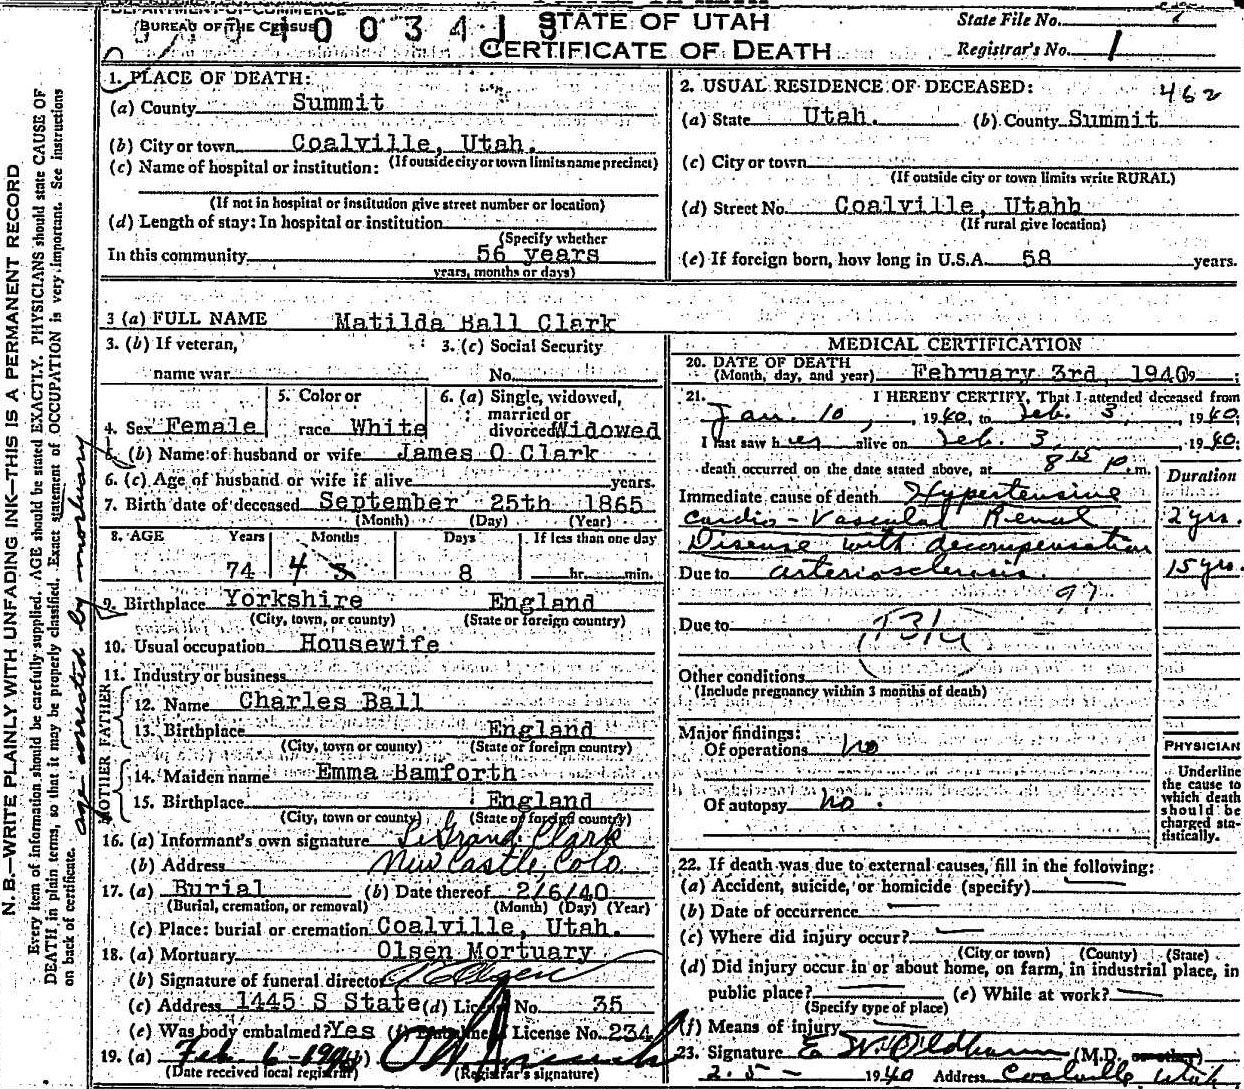 DEPARTMENT OF COMMERCE
(BUREAU OF THE CENSUS
STATE OF UTAH
CERTIFICATE OF DEATH
State File No.
Registrar's No. 1
1. PLACE OF DEATH:
(a) County Summit
(b) City or town Coalville, Utah.
(If outside city or town limits name precinct)
(c) Name of hospital or institution:
(If not in hospital or institution give street number or location)
(d) Length of stay: In hospital or institution
(Specify whether
In this community 56 years
years, months or days)
2. USUAL RESIDENCE OF DECEASED: 462
(a) State Utah. (b) County Summit
(c) City or town
(If outside city or town limits write RURAL)
(d) Street No. Coalville, Utahh
(If rural give location)
(e) If foreign born, how long in U.S.A. 58 years.
3 (a) FULL NAME Matilda Ball Clark
3. (b) If veteran, name war
3. (c) Social Security No.
4. Sex Female
5. Color or race White
6. (a) Single, widowed, married or divorced Widowed
(b) Name of husband or wife James O Clark
6. (c) Age of husband or wife if alive years.
7. Birth date of deceased September 25th 1865
(Month) (Day) (Year)
8. AGE Years Months Days If less than one day
74 4 3 8 hr. min.
9. Birthplace Yorkshire England
(City, town, or county) (State or foreign country)
10. Usual occupation Housewife
11. Industry or business
FATHER
12. Name Charles Ball
13. Birthplace England
(City, town or county) (State or foreign country)
MOTHER
14. Maiden name Emma Bamforth
15. Birthplace England
(City, town or county) (State or foreign country)
16. (a) Informant's own signature LeGrand Clark
(b) Address New Castle, Colo.
17. (a) Burial (b) Date thereof 2/6/40
(Burial, cremation, or removal) (Month) (Day) (Year)
(c) Place: burial or cremation Coalville, Utah.
18. (a) Mortuary Olsen Mortuary
(b) Signature of funeral director
(c) Address 1445 S State (d) License No. 35
(e) Was body embalmed? Yes (f) License No. 234
19. (a) Feb. 6-1940 (b)
(Date received local registrar) (Registrar's signature)
MEDICAL CERTIFICATION
20. DATE OF DEATH
(Month, day, and year) February 3rd, 1940
21. I HEREBY CERTIFY, That I attended deceased from
Jan. 10, 1940, to Feb. 3, 1940;
I last saw her alive on Feb. 3, 1940;
death occurred on the date stated above, at 8 15 P.m.
Duration
Immediate cause of death Hypertensive
Cardio-Vascular Renal 2 yrs.
Disease with decompensation
Due to arteriosclerosis. 15 yrs.
97
Due to 131a
Other conditions
(Include pregnancy within 3 months of death)
Major findings:
Of operations no
Of autopsy no.
PHYSICIAN
Underline the cause to which death should be charged statistically.
22. If death was due to external causes, fill in the following:
(a) Accident, suicide, or homicide (specify)
(b) Date of occurrence
(c) Where did injury occur?
(City or town) (County) (State)
(d) Did injury occur in or about home, on farm, in industrial place, in
public place? (e) While at work?
(Specify type of place)
(f) Means of injury
23. Signature E W. Oldham (M.D. or other)
2-5- 1940 Address Coalville Utah
N. B.—WRITE PLAINLY WITH UNFADING INK—THIS IS A PERMANENT RECORD
Every item of information should be carefully supplied. AGE should be stated EXACTLY. PHYSICIANS should state CAUSE OF
DEATH in plain terms, so that it may be properly classified. Exact statement of OCCUPATION is very important. See instructions
on back of certificate.
age corrected by mortuary